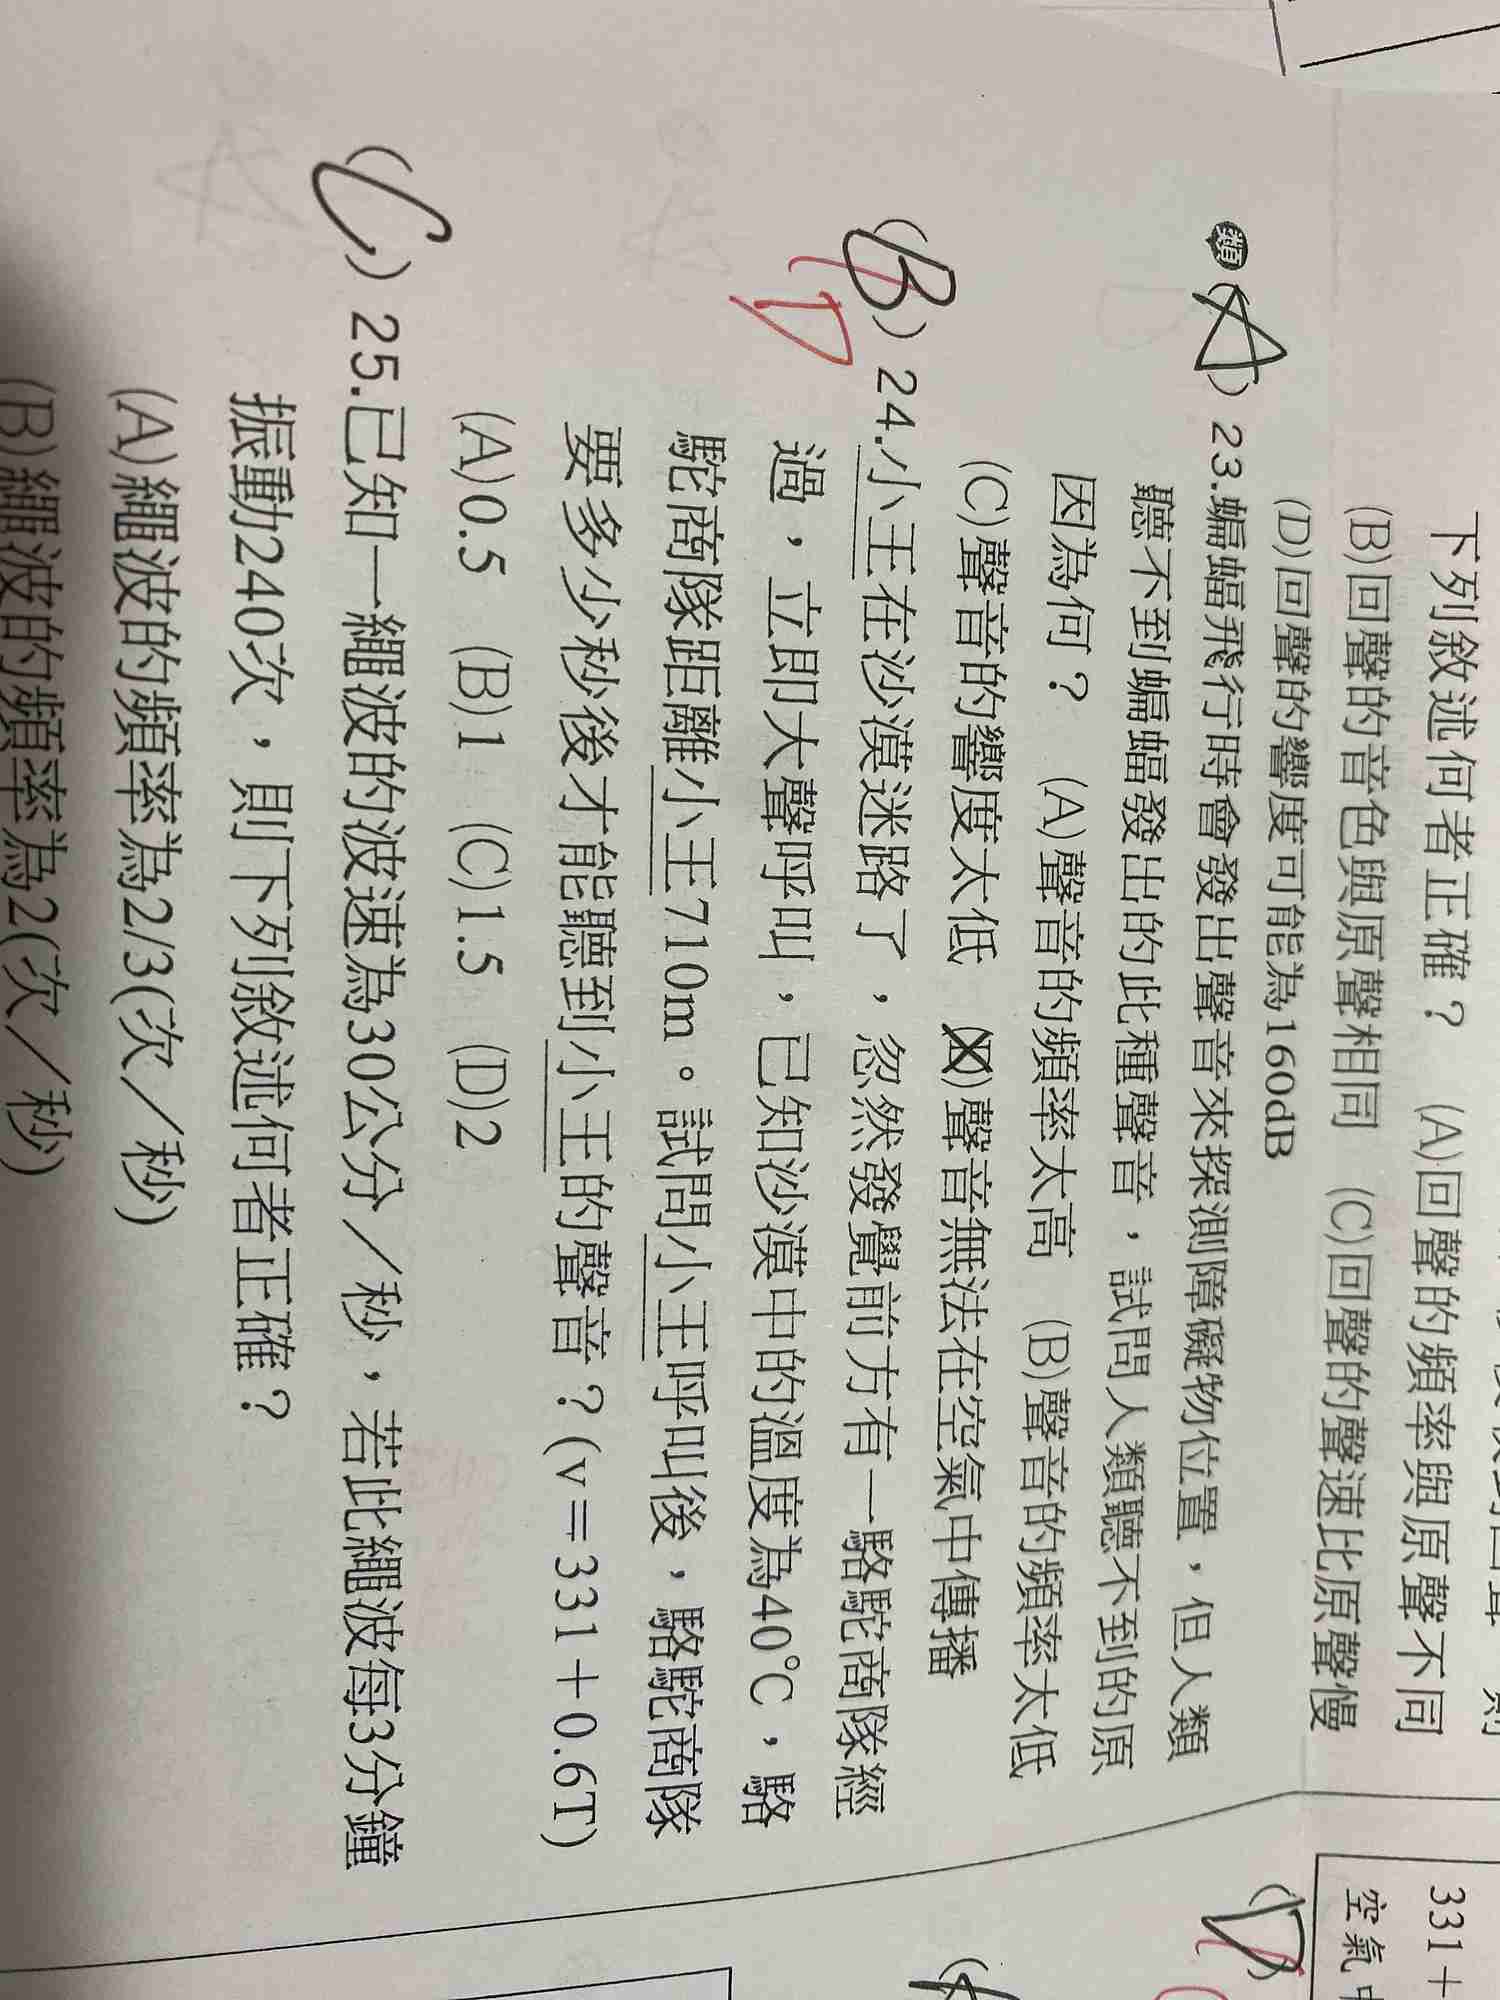 下列敘述何者正確? (A)回聲的頻率與原聲不同
(B)回聲的音色與原聲相同 (C)回聲的聲速比原聲慢
(D)回聲的響度可能為160dB
類(A)23.蝙蝠飛行時會發出聲音來探測障礙物位置,但人類
聽不到蝙蝠發出的此種聲音,試問人類聽不到的原
因為何? (A)聲音的頻率太高 (B)聲音的頻率太低
(C)聲音的響度太低 (D)聲音無法在空氣中傳播
(B)24.小王在沙漠迷路了,忽然發覺前方有一駱駝商隊經
D
過,立即大聲呼叫,已知沙漠中的溫度為40℃,駱
駝商隊距離小王710m。試問小王呼叫後,駱駝商隊
要多少秒後才能聽到小王的聲音?(v=331+0.6T)
(A)0.5 (B)1 (C)1.5 (D)2
(C)25.已知一繩波的波速為30公分/秒,若此繩波每3分鐘
振動240次,則下列敘述何者正確?
(A)繩波的頻率為2/3(次/秒)
(B)繩波的頻率為2(次/秒)
331+
空氣中